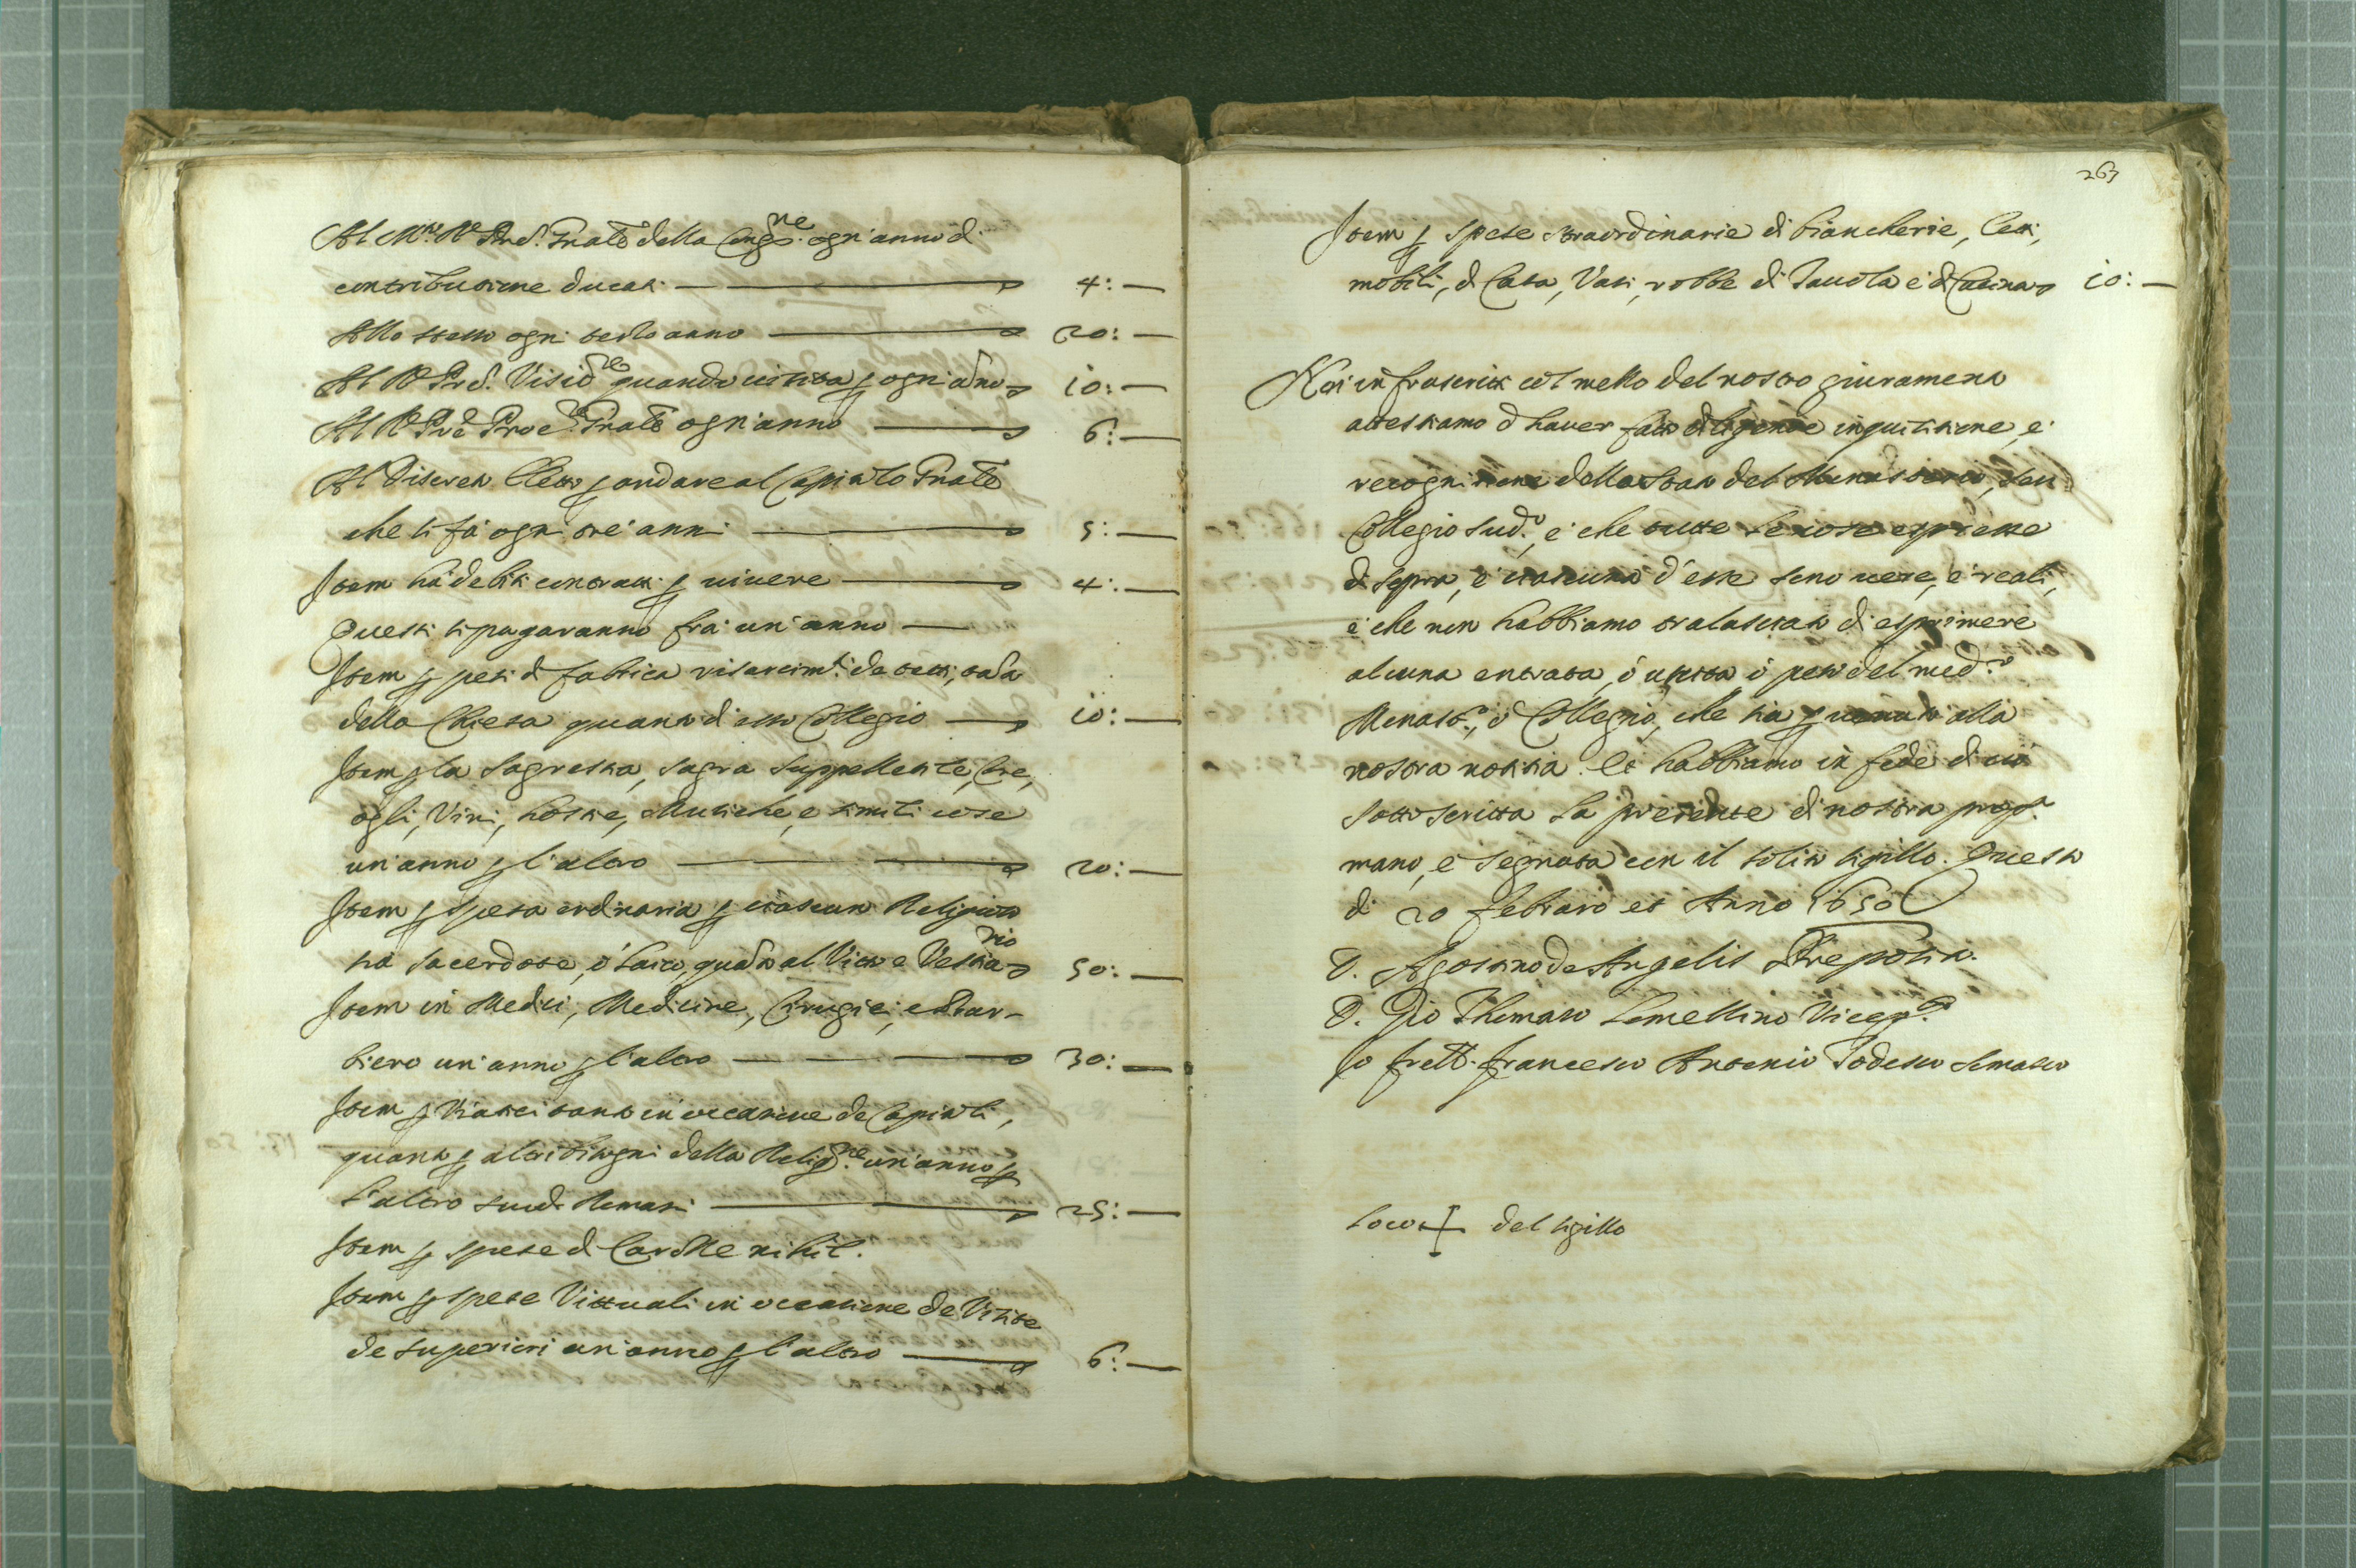 Al M.to R. Pre. Gnale della Cong.ne ogn'anno di
contributione ducati 4: —
Allo stesso ogni sesto anno 20: —
Al R. Pre. Visit.re quando visita p ogni anno 10: —
Al R. Pre Proc.re Gnale ogn'anno 6: —
Al Discreto eletto p andare al Capitolo Gnale
che si fà ogni tre anni 5: —
Item hà debiti contratti p vivere 4: —
Questi si pagaranno frà un'anno —
Item p pesi di fabrica risarcim.ti de tetti, tanto
della Chiesa quanto d'esso Collegio 10: —
Item p la Sagrestia, sagra suppellettile, Cere,
ogli, Vini, hostie, Musiche, e simili cose
un'anno p l'altro 20: —
Item p spesa ordinaria p ciascun Religioso
sia sacerdote, ò laico, quanto al Vitto e Vestiario 50: —
Item in Medici, Medicine, Cirugie, e Bar-
biero un'anno p l'altro 30: —
Item p Viatici tanto in occasione de Capitoli,
quanto p altri bisogni della Relig.ne un'anno p
l'altro scudi Romani 25: —
Item p spese di Cavalle nihil.
Item p spese Vittuali in occasione de Visite
de superiori un'anno p l'altro 6: —
263
Item p spese straordinarie di biancherie, letti,
mobili, di Casa, Vasi, robbe di Tavola e di Cucina 10: —
Noi infrascritti col mezzo del nostro giuramento
attestiamo d'haver fatto diligente inquisitione, e
recognitione dello stato del Monasterio, seu
Collegio sud.o, e che tutte le cose espresse
di sopra, e ciascuna d'esse sono vere, e reali,
e che non habbiamo tralasciato di esprimere
alcuna entrata, ò uscita ò peso del med.o
Monast.o, ò Collegio, che sia p venuto alla
nostra notitia. Et habbiamo in fede di ciò
sottoscritta la presente di nostra prop.a
mano, e segnata con il solito sigillo. Questo
dì 20 febraro et Anno 1650
D. Agostino de Angelis Preposito.
D. Gio Thomaso Lomellino Vicep.o
Io fratt. Francesco Antonio Todesco Somasco
Loco + del sigillo